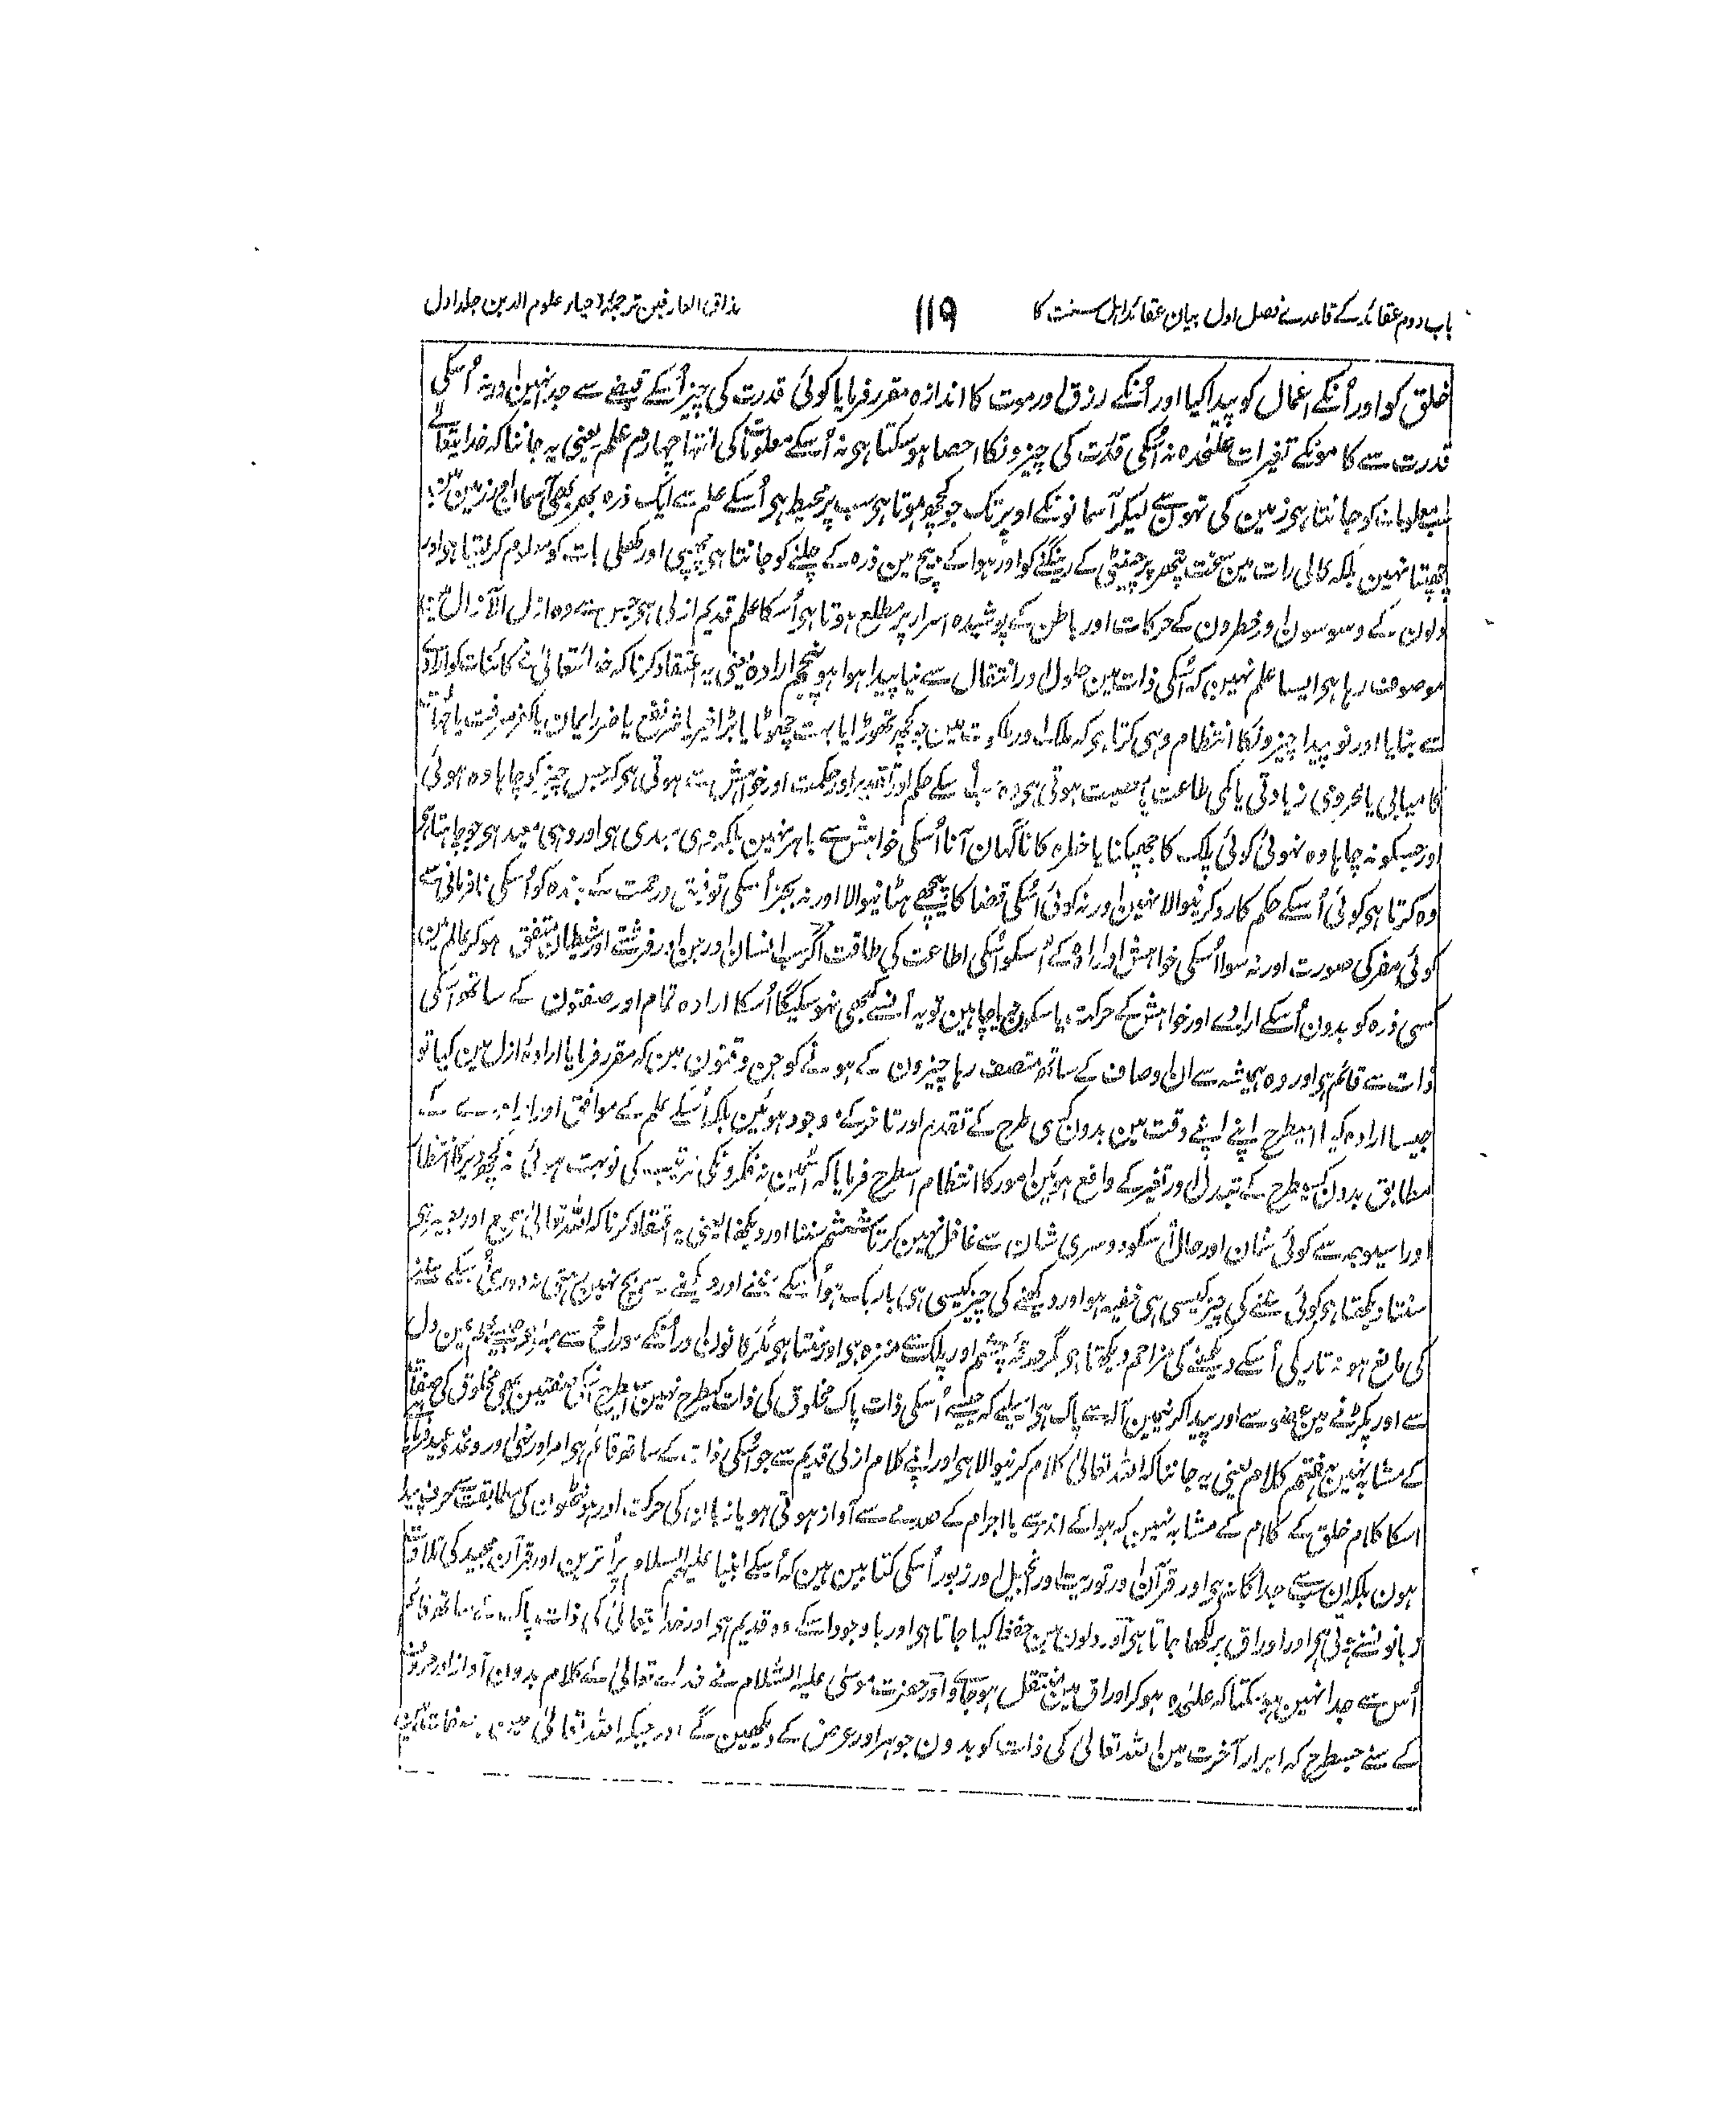 باب دوم عقائد کے قاعدے فصل اول بیان عقائد اہل سنت کا
119
مذاق العارفین ترجمۂ احیاء علوم الدین جلد اول
خلق کو اور اُنکے اعمال کو پیدا کیا اور اُنکے رزق اور موت کا اندازہ مقرر فرمایا کوئی قدرت کی چیز اُسکے قبضے سے جدا نہین اور نہ اُسکی
قدرت سے کامونکے تغیرات علیٰحدہ نہ اُسکی قدرت کی چیزونکا احصا ہو سکتا ہی نہ اُسکے معلومات کی انتہا چہارم علم یعنی یہ جاننا کہ خدایتعالے
سب معلومات کو جانتا ہی زمین کی تہون سے لیکر آسمانونکے اوپر تک جو کچھ ہوتا ہی سب پر محیط ہی اُسکے علم سے ایک ذرہ بھر بھی آسمان اور زمین مین
چھپتا نہین بلکہ کالی رات مین سخت پتھر پر چیونٹی کے رینگنے کو اور ہوا کے بیچ مین ذرہ کے چلنے کو جانتا ہی چھپی اور کھلی بات کو معلوم کر لیتا ہی اور
دلون کے وسوسون اور خطرون کے حرکات اور باطن کے پوشیدہ اسرار پر مطلع ہوتا ہی اُسکا علم قدیم ازلی ہی جس سے وہ ازل الآزال مین
موصوف رہا ہی ایسا علم نہین کہ اُسکی ذات مین حلول اور انتقال سے نیا پیدا ہوا ہو پنجم ارادہ یعنی یہ اعتقاد کرنا کہ خدایتعالیٰ نے کائنات کو ارادہ
سے بنایا اور نو پیدا چیزونکا انتظام وہی کرتا ہی کہ ملک اور ملکوت مین جو کچھ تھوڑا یا بہت چھوٹا یا بڑا خیر یا شر نفع یا ضرر ایمان یا کفر معرفت یا جہالت
کامیابی یا محرومی زیادتی یا کمی طاعت یا معصیت ہوتی ہی وہ سب اُسکے حکم اور تقدیر اور حکمت اور خواہش سے ہوتی ہی کہ جس چیز کو چاہا وہ ہوئی
اور جسکو نہ چاہا وہ نہوئی کوئی پلک کا جھپکنا یا خطرہ کا ناگہان آنا اُسکی خواہش سے باہر نہین بلکہ وہی مبدی ہی اور وہی معید ہی جو چاہتا ہی
وہ کرتا ہی کوئی اُسکے حکم کا رد کرنیوالا نہین اور نہ کوئی اُسکی قضا کا پیچھے ہٹانیوالا اور نہ بجز اُسکی توفیق و رحمت کے بندہ کو اُسکی نافرمانی سے
کوئی مفر کی صورت اور نہ سوا اُسکی خواہش اور ارادہ کے اُسکو اُسکی اطاعت کی طاقت اگر سب انسان اور جن اور فرشتے اور شیطان متفق ہو کر عالم مین
کسی ذرہ کو بدون اُسکے ارادے اور خواہش کے حرکت یا سکون دینا چاہین تو یہ اُنسے کبھی نہو سکیگا اُسکا ارادہ تمام اور صفتون کے ساتھ اُسکی
ذات سے قائم ہی اور وہ ہمیشہ سے ان اوصاف کے ساتھ متصف رہا چیزون کے ہونے کو جن وقتون مین کہ مقرر فرمایا ارادہ ازل مین کیا تو
جیسا ارادہ کیا اسیطرح اپنے اپنے وقت مین بدون کسی طرح کے تقدم اور تاخر کے موجود ہوئین بلکہ اُسکے علم کے موافق اور ارادہ کے
مطابق بدون کسیطرح کے تبدل اور تغیر کے واقع ہوئین امور کا انتظام اسطرح فرمایا کہ اُسمین نہ فکرونکی ترتیب کی نوبت ہوئی نہ کچھ دیر کا انتظار
اور اسیوجہ سے کوئی شان اور حال اُسکو دوسری شان سے غافل نہین کرتا ششم سننا اور دیکھنا یعنی یہ اعتقاد کرنا کہ اللہ تعالیٰ سمیع اور بصیر ہی
سنتا دیکھتا ہی کوئی سننے کی چیز کیسی ہی خفیہ ہو اور دیکھنے کی چیز کیسی ہی باریک ہو اُسکے سننے اور دیکھنے سے بچ نہین سکتی نہ دوری اُسکے سننے
کی مانع ہو نہ تاریکی اُسکے دیکھنے کی مزاحم دیکھتا ہی مگر حدقۂ چشم اور پلک سے منزہ ہی اور سنتا ہی مگر کانون اور اُنکے سوراخ سے مبرا جیسے علم مین دل
سے اور پکڑنے مین عضو سے اور پیدا کرنیمین آلہ سے پاک ہی اسلیے کہ جیسے اُسکی ذات پاک مخلوق کی ذات کیطرح نہین اسیطرح اُسکی صفتین بھی مخلوق کی صفات
کے مشابہ نہین ہفتم کلام یعنی یہ جاننا کہ اللہ تعالیٰ کلام کرنیوالا ہی اور اپنے کلام ازلی قدیم سے جو اُسکی ذات کے ساتھ قائم ہی امر اور نہی اور وعدہ وعید فرماتا
اسکا کلام خلق کے کلام کے مشابہ نہین کہ ہوا کے اندر سے یا اجرام کے صدمے سے آواز ہوتی ہو یا زبان کی حرکت اور ہونٹھون کی مطابقت سے حرف پیدا
ہون بلکہ ان سب سے جداگانہ ہی اور قرآن اور توریت اور انجیل اور زبور اُسکی کتابین ہین کہ اُسکے انبیا علیہم السلام پر اُترین اور قرآن مجید کی تلاوت
زبانونسے ہوتی ہی اور اوراق پر لکھا جاتا ہی اور دلون مین حفظ کیا جاتا ہی اور باوجود اسکے وہ قدیم ہی اور خدایتعالیٰ کی ذات پاک کے ساتھ قائم
اُس سے جدا نہین ہو سکتا کہ علیٰحدہ ہو کر اوراق مین منتقل ہو جاوے اور حضرت موسیٰ علیہ السلام نے خداے تعالیٰ کے کلام بدون آواز اور حروف
کے سنے جسطرح کہ ابرار آخرت مین اللہ تعالیٰ کی ذات کو بدون جوہر اور عرض کے دیکھین گے اور جبکہ اللہ تعالیٰ مین یہ صفات